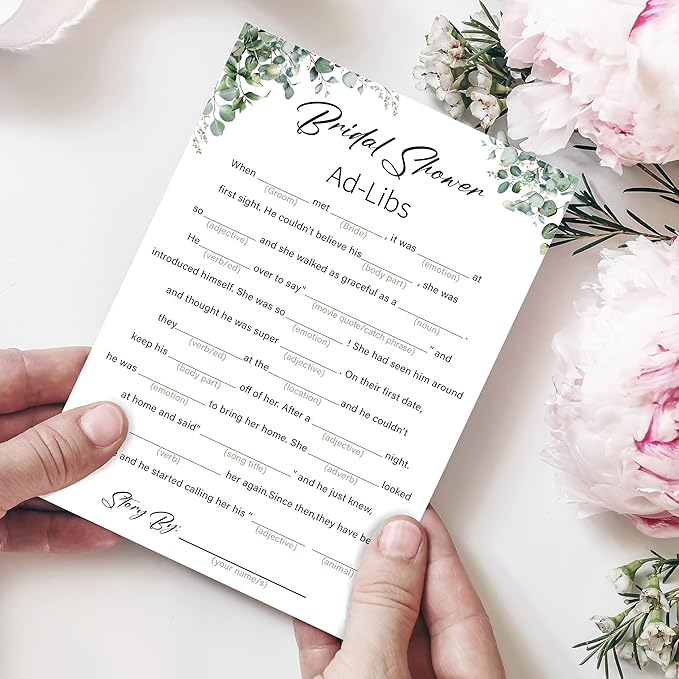 Bridal Shower
Ad-Libs
When ________ met ________, it was ________ at
(Groom) (Bride) (emotion)
first sight. He couldn't believe his________, she was
(body part)
so ________ and she walked as graceful as a ________.
(adjective) (noun)
He________ over to say"________" and
(verb/ed) (movie quote/catch phrase)
introduced himself. She was so ________! She had seen him around
(emotion)
and thought he was super ________. On their first date,
(adjective)
they________ at the ________ and he couldn't
(verb/ed) (location)
keep his________ off of her. After a ________ night.
(body part) (adjective)
he was ________ to bring her home. She ________ looked
(emotion) (adverb)
at home and said"________" and he just knew,
(song title)
________ her again.Since then,they have be
(verb)
and he started calling her his "________ ________
(adjective) (animal)
Story By: ________
(your name/s)